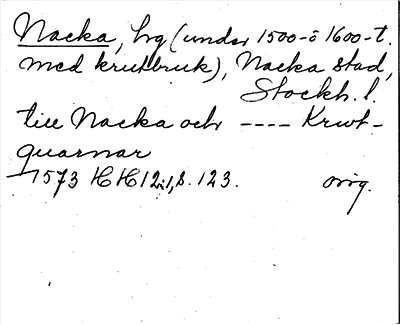 Nacka, hg (under 1500- o 1600-t.
med krutbruk), Nacka stad,
Stockh. l.
till Nacka och ---- Krwt-
quarnar
1573 HH 12:1, s. 123. orig.